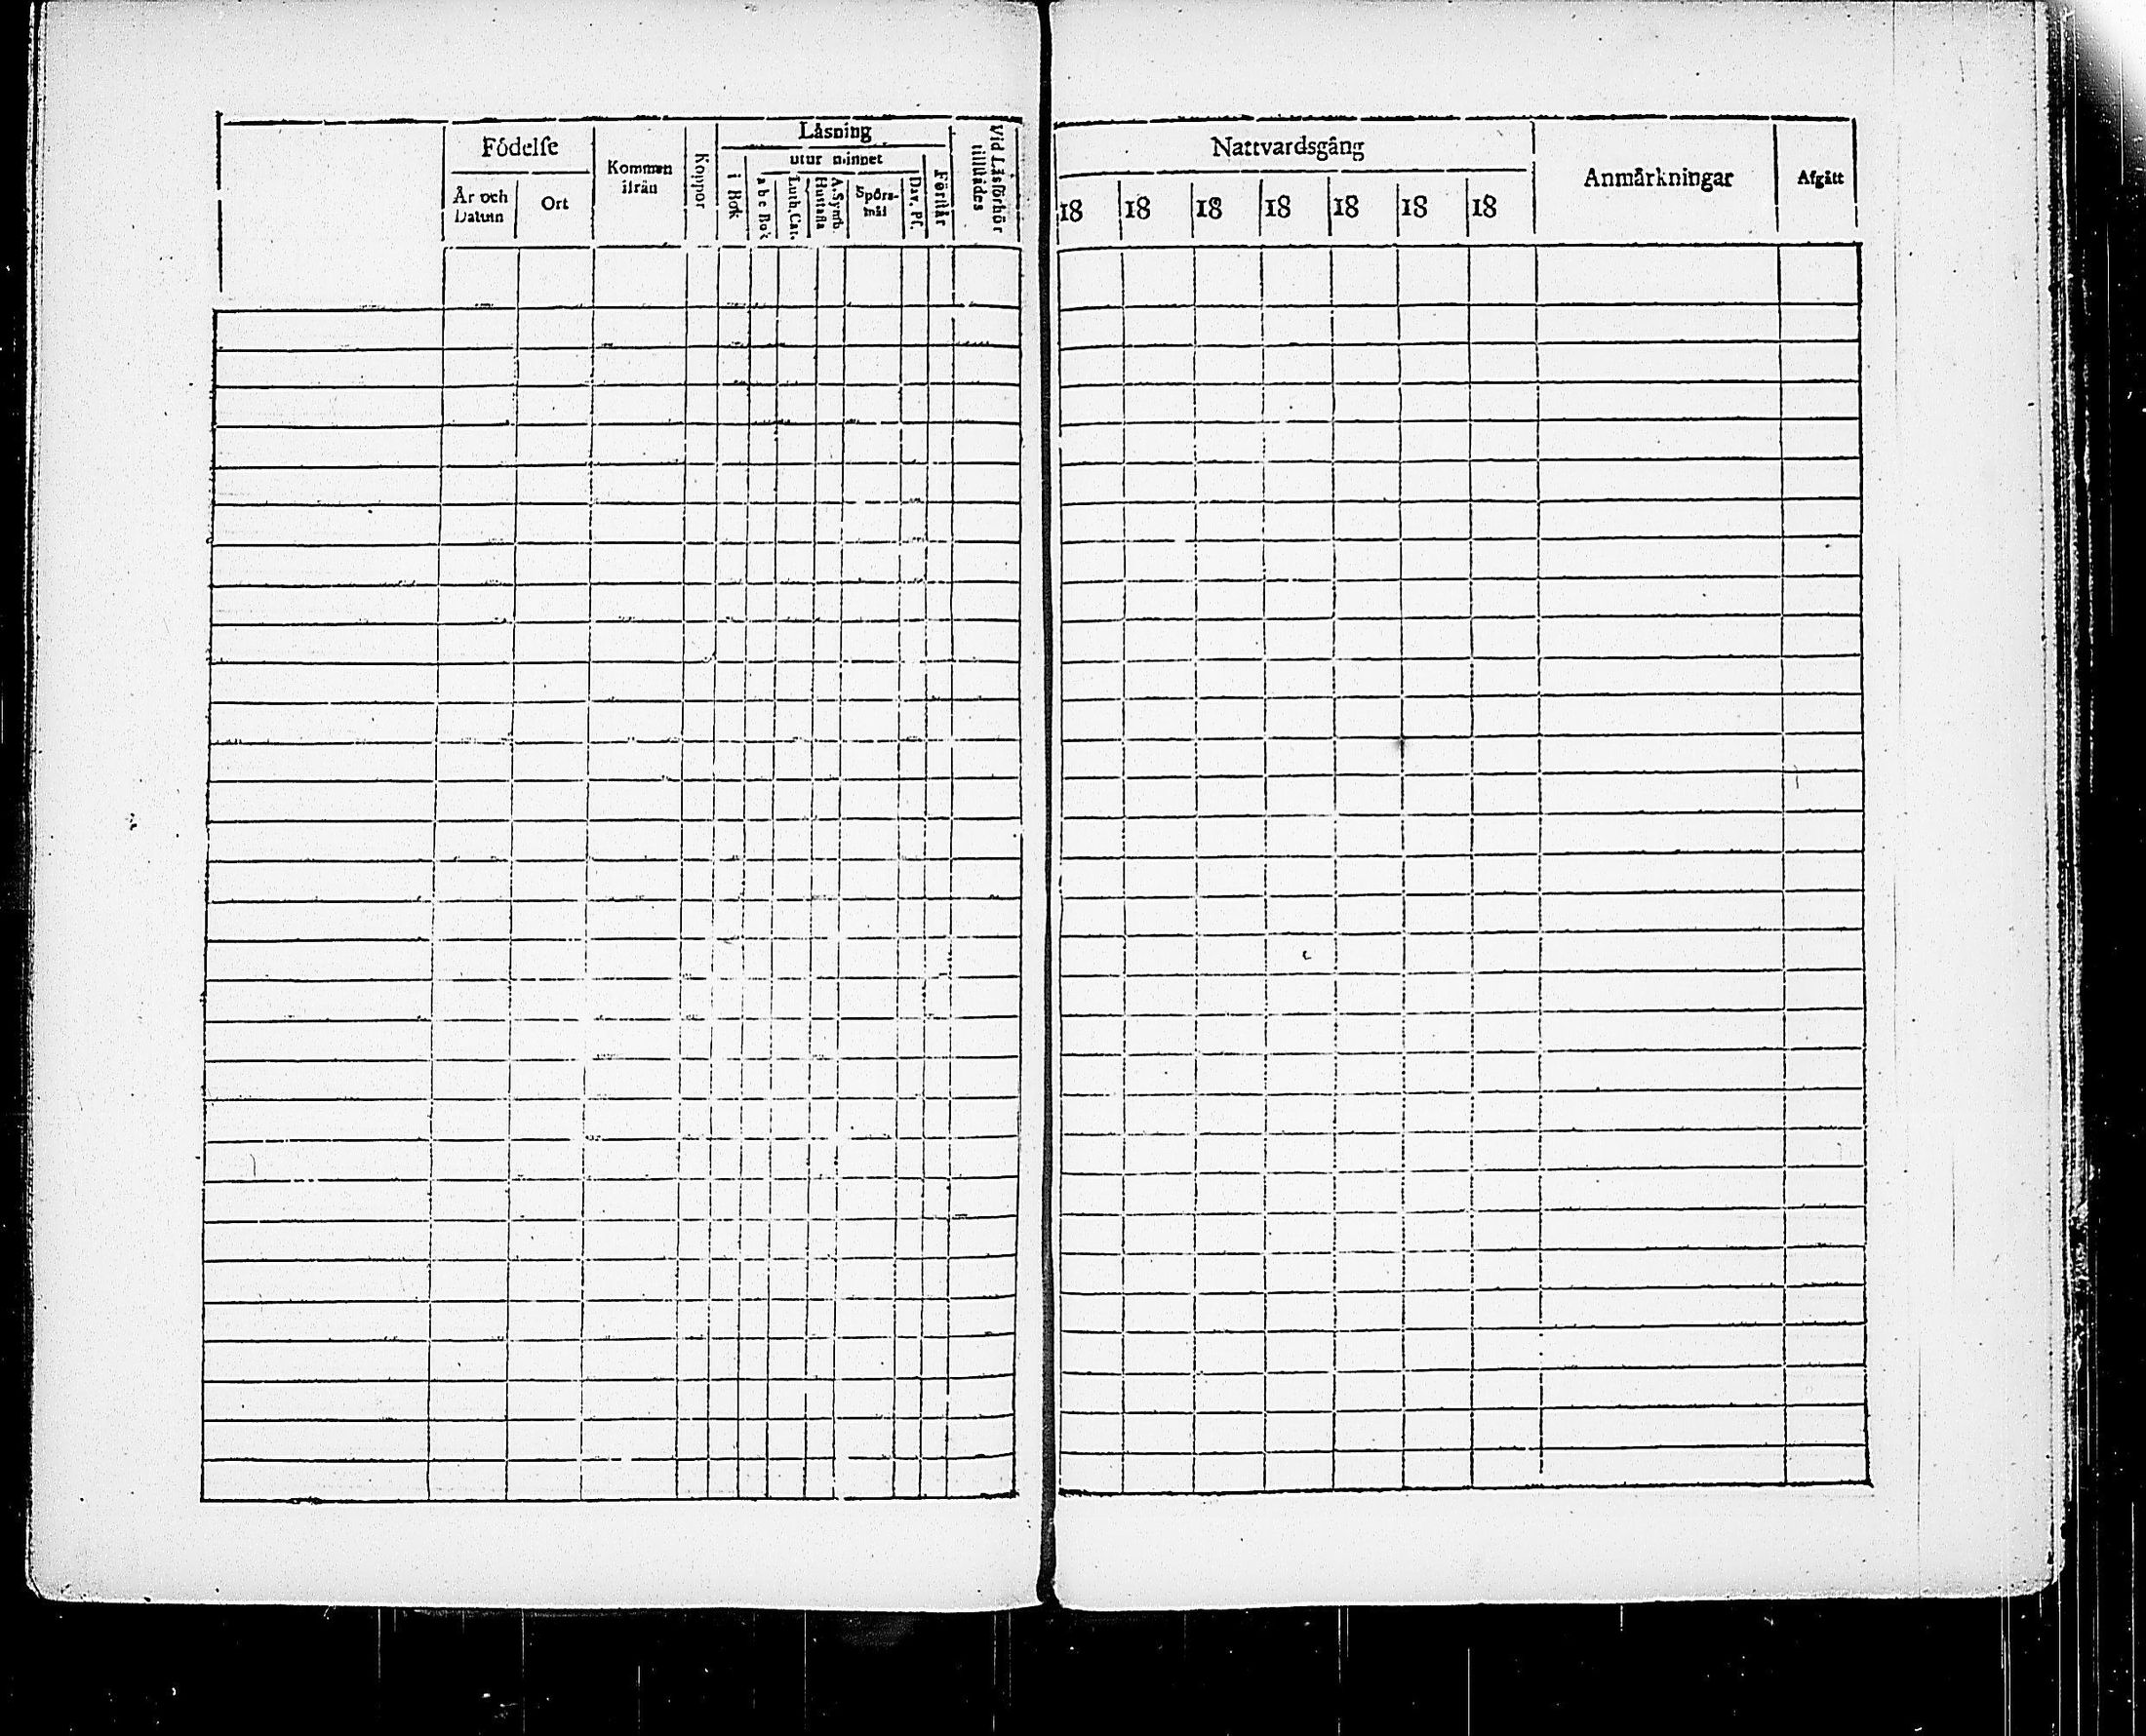 Födelse
År och
Datum
Ort
Kommen
ifrån
Koppor
Läsning
i Bok
utur minnet
a b c Bok
Luth. Cat.
Hustafla
A. Symb.
Spörs-
mål
Dav. Ps.
Förstår
Vid Läsförhör
tillstädes
Nattvardsgång
18 18 18 18 18 18 18
Anmärkningar
Afgått